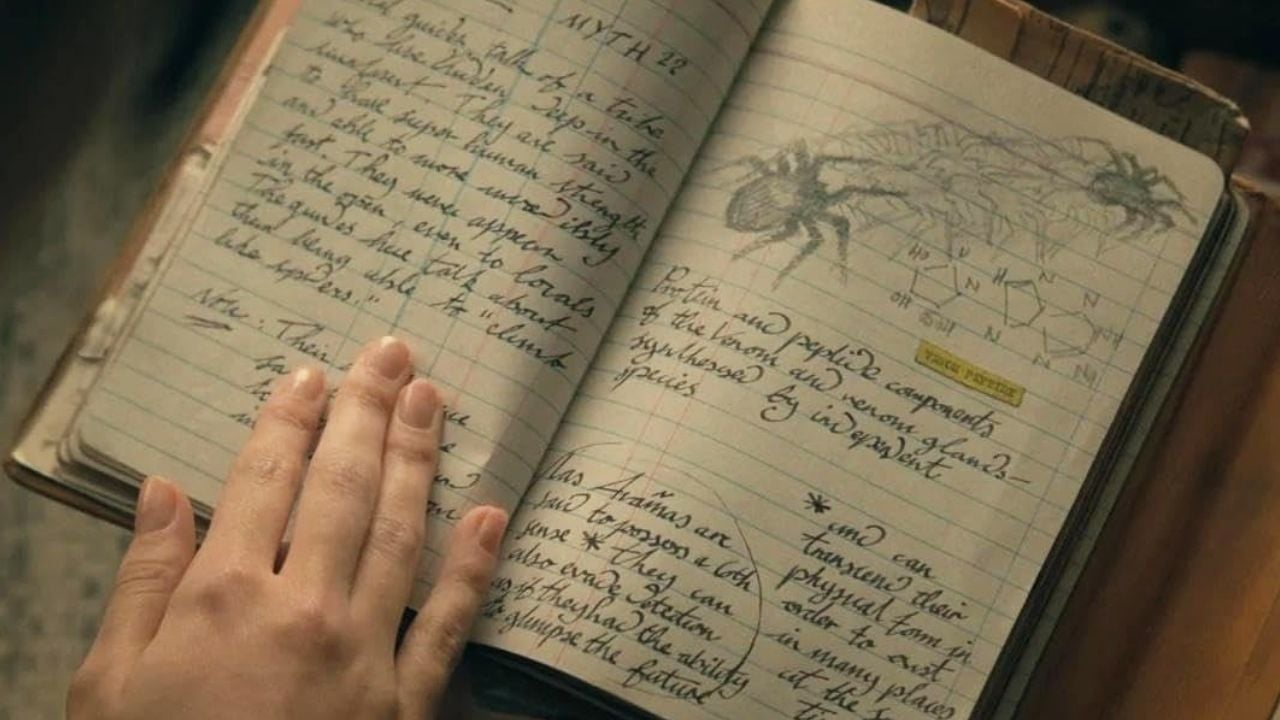 MYTH ??
guides talk of a tribe
who live hidden deep in the
rainforest. They are said
to have super human strength
and able to move incredibly
fast. They never appear
in the open, even to locals
The guides hue talk about
them being able to "climb
like spiders."
Note: Their
Protein and peptide components
of the Venom and venom glands—
synthesised by independent
species
"Las Arañas are
said to possess a 6th
sense * They can
also evade detection
as if they had the ability
to glimpse the
future
* and can
transcend their
physical form in
order to exist
in many places
at the
HO
N
H
N
N
OH
N
N